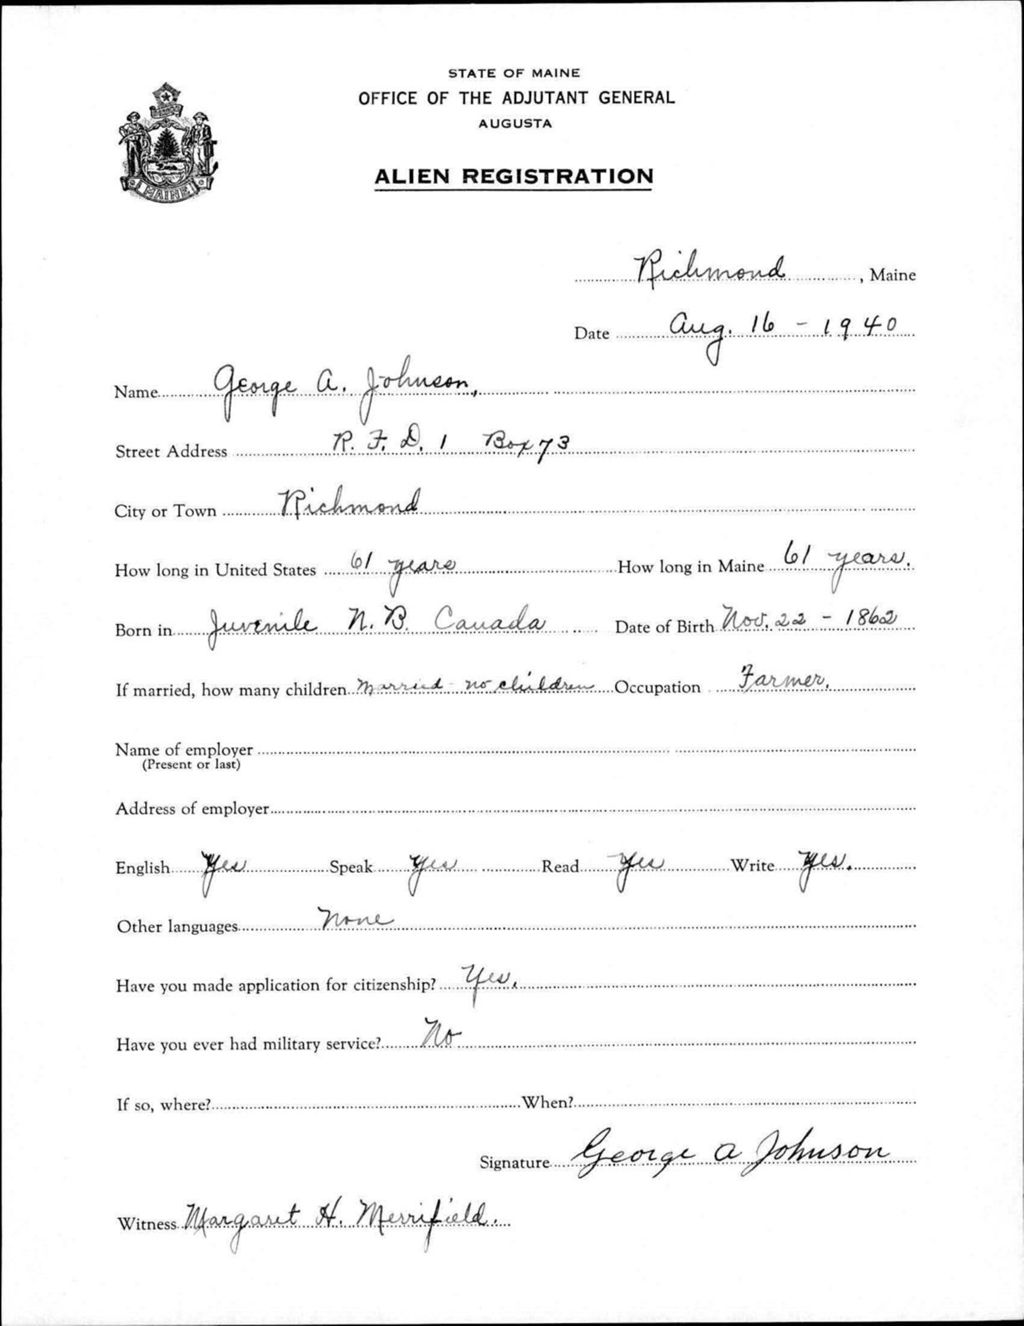 STATE OF MAINE
OFFICE OF THE ADJUTANT GENERAL
AUGUSTA
ALIEN REGISTRATION
MAINE
Richmond, Maine
Date Aug. 16 - 1940
Name George A. Johnson,
Street Address R. F. D. 1 Box 73
City or Town Richmond
How long in United States 61 years How long in Maine 61 years.
Born in Juvenile N. B. Canada Date of Birth Nov. 22 - 1862
If married, how many children Married - no children Occupation Farmer.
Name of employer
(Present or last)
Address of employer
English Yes Speak Yes Read Yes Write Yes.
Other languages None
Have you made application for citizenship? Yes.
Have you ever had military service? No
If so, where? When?
Signature George A Johnson
Witness Margaret H. Merrifield.